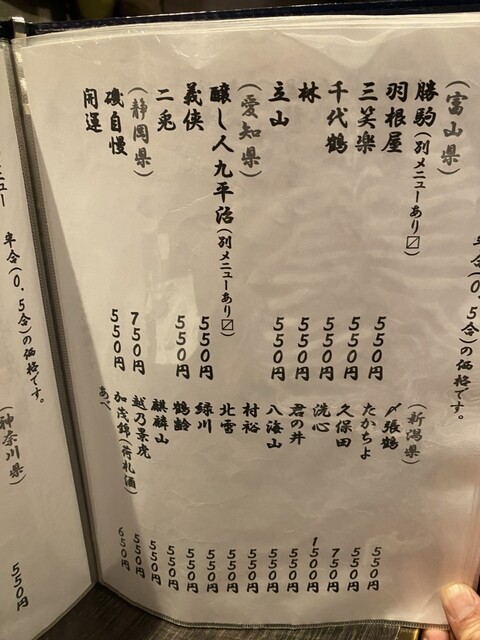 5合)の価格です。
(富山県)
勝駒(別メニューあり〼)
羽根屋 550円
三笑楽 550円
千代鶴 550円
林 550円
立山 550円
(愛知県)
醸し人九平治(別メニューあり〼)
義侠 550円
二兎 550円
(静岡県)
磯自慢 750円
開運 550円
(新潟県)
〆張鶴 550円
たかちよ 550円
久保田 750円
洗心 1500円
君の井 550円
八海山 550円
村祐 550円
北雪 550円
緑川 550円
鶴齢 550円
麒麟山 550円
越乃景虎 550円
加茂錦(荷札酒) 550円
あべ 650円
ニュー
半合(0.5合)の価格です。
(神奈川県)
550円